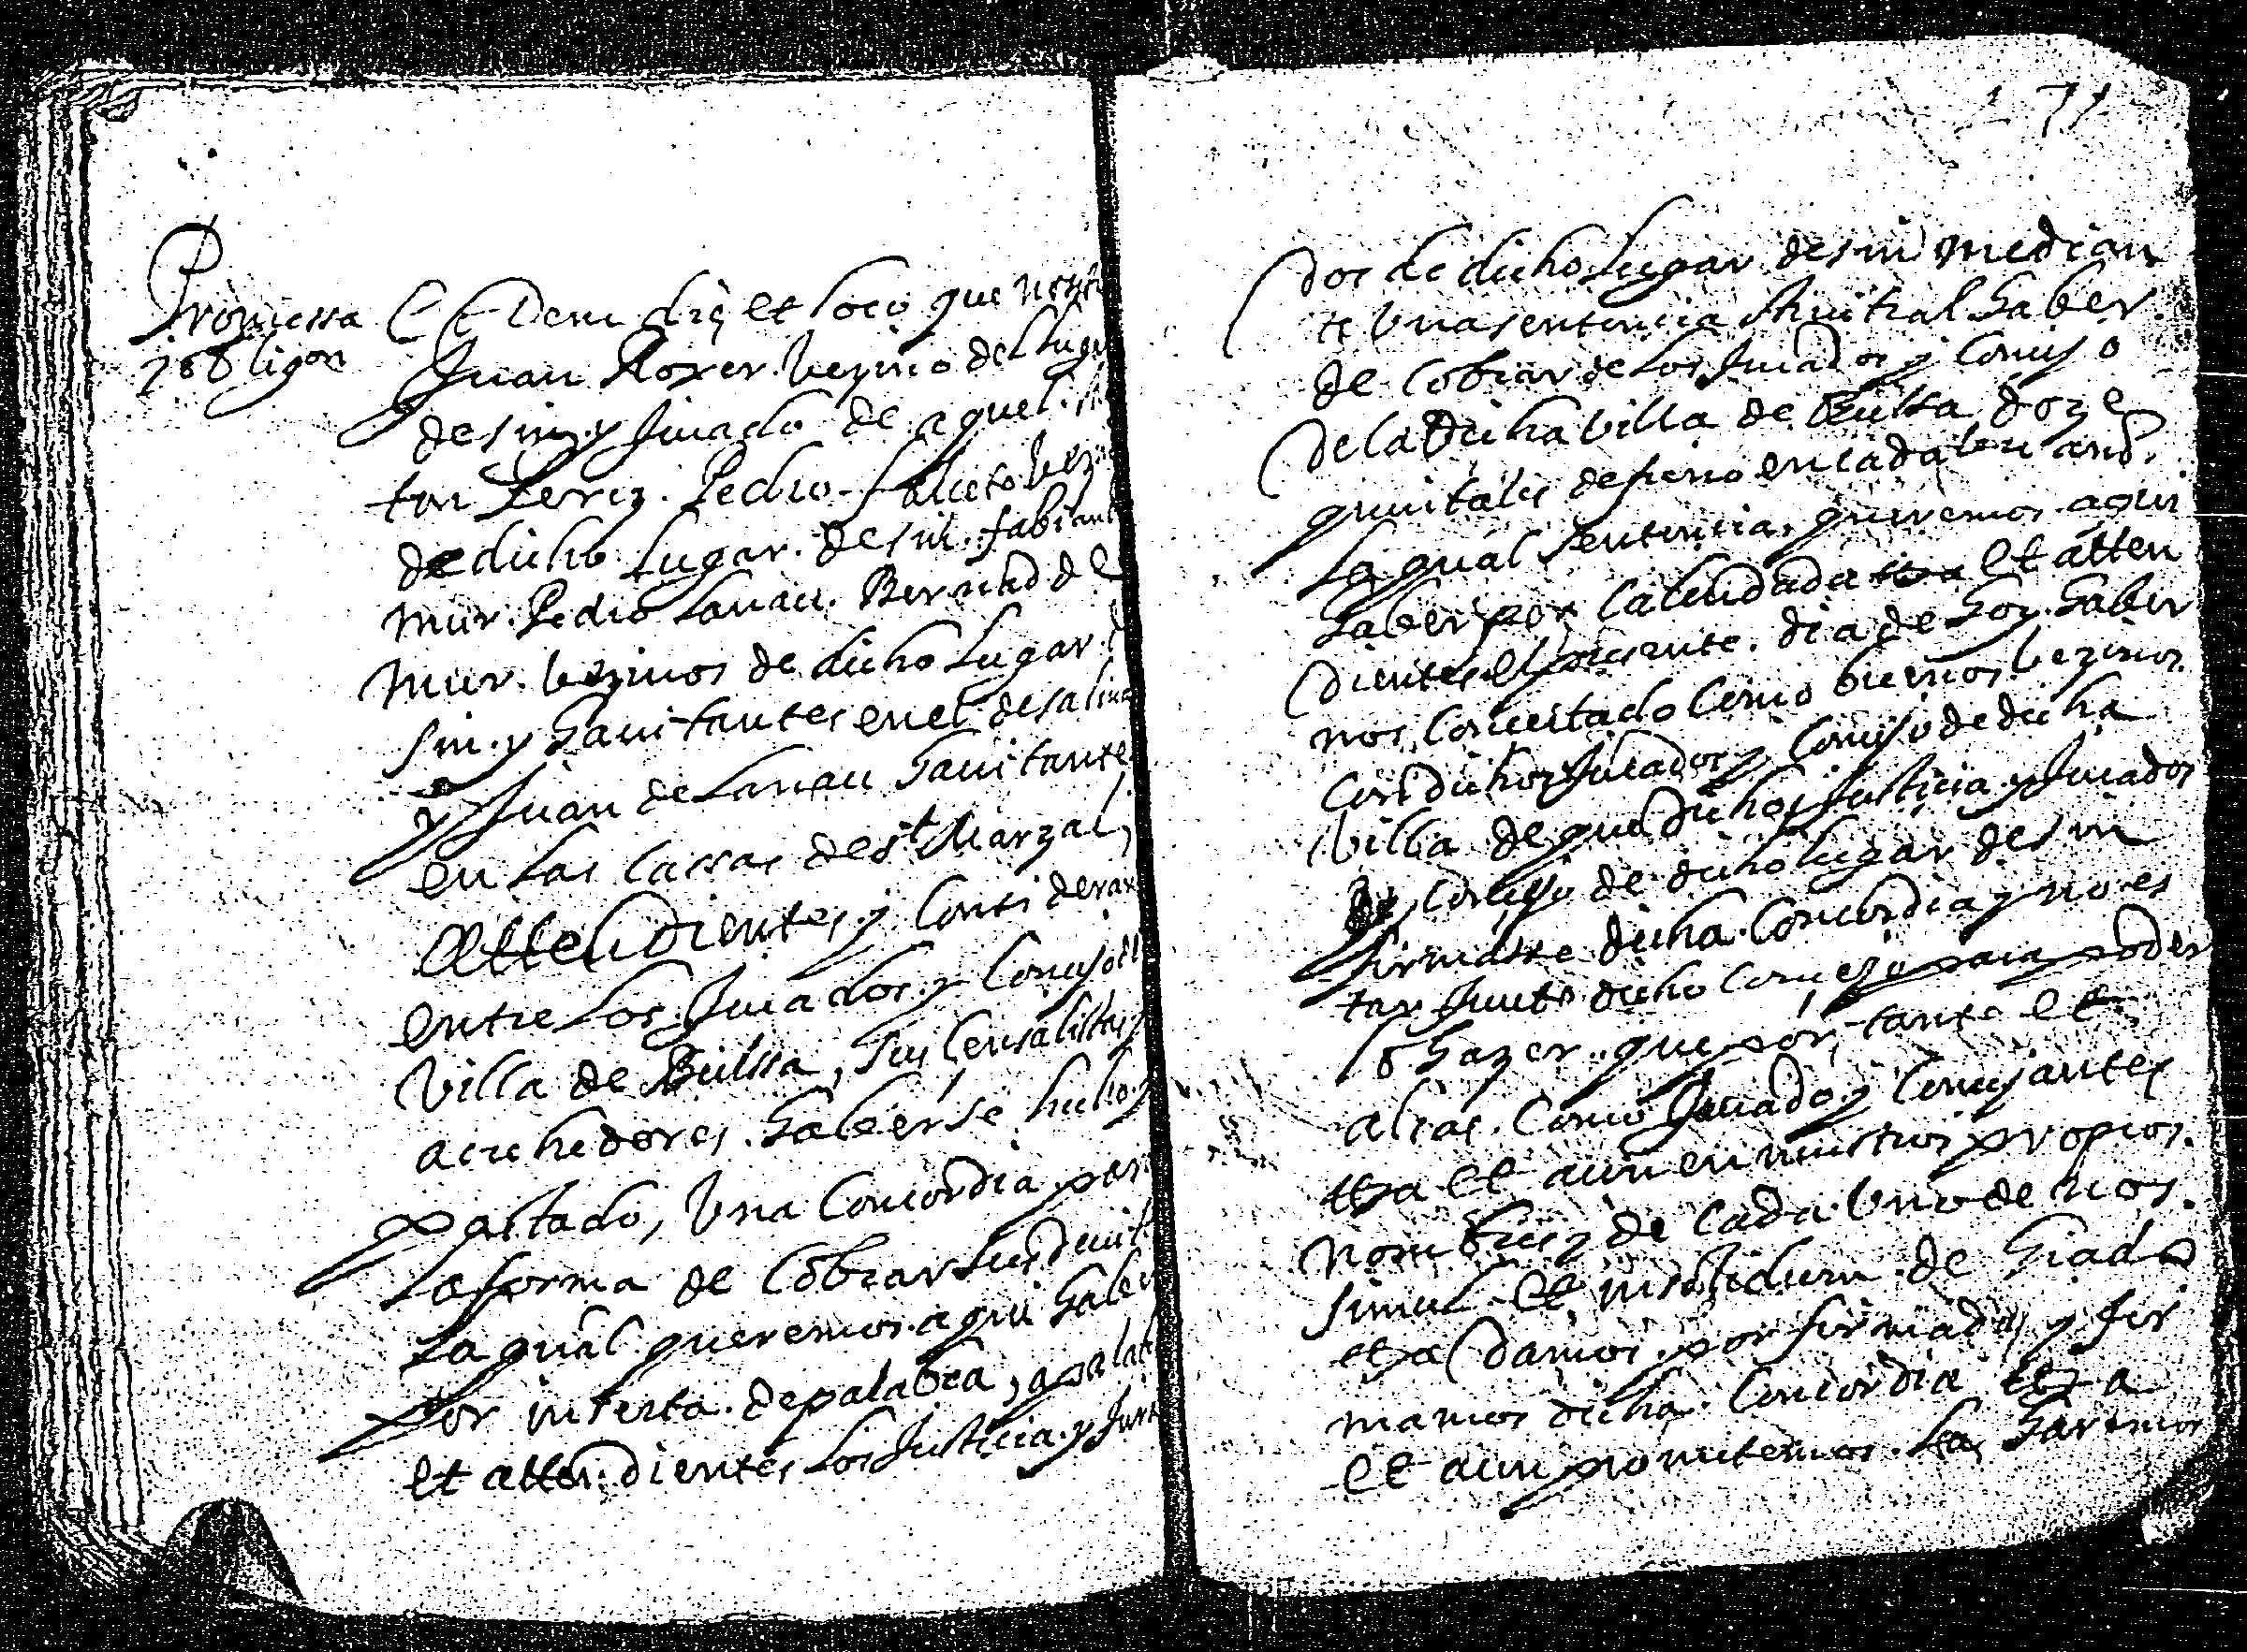 Promessa
y obligon
Eadem die et loco que nos
Juan Roxer vezino del lugar
de sin y Jurado de aquel
ton Perez. Pedro Falceto vez
de dicho lugar. de sin. fabian
mur. Pedro Lanau. Bernad de
Mur. vezinos de dicho lugar.
sin. y havitantes en el de salinas
y Juan de Lanau havitante
en las cassas de st Marzal,
Attendientes y considerar
entre los Jurados y Consejo
villa de Bielssa, sus censalistas
acrehedores. haberse hecho y
pactado, una Concordia por
la forma de cobrar sus
la qual queremos aqui haber
por inserta. de palabra, a palab
et attendientes los Justicia y Jura
171
dos de dicho lugar de sin median
te una sentencia Arvitral haber
de cobrar de los Jurados y Consejo
de la dicha villa de Bielsa doze
quintales de fierro en cada un año.
la qual sentencia, queremos aqui
haber por calendada et atten
dientes el presente. dia de hoy. haber
nos concertado como buenos vezinos
con dichos Jurados y Consejo de dicha
villa de que dichos Justicia y Jurados
y Consejo de dicho lugar de sin
firmasse dicha Concordia y no es
tar Junto dicho Consejo para poder
lo hazer. que por, tanto et
alias. Como Jurado y Consejantes
et aun en nuestros propios.
nombres y de cada uno de nos.
simul et insolidum de grado
damos por firmada y fir
mamos dicha Concordia
et aun prometemos. la haremos